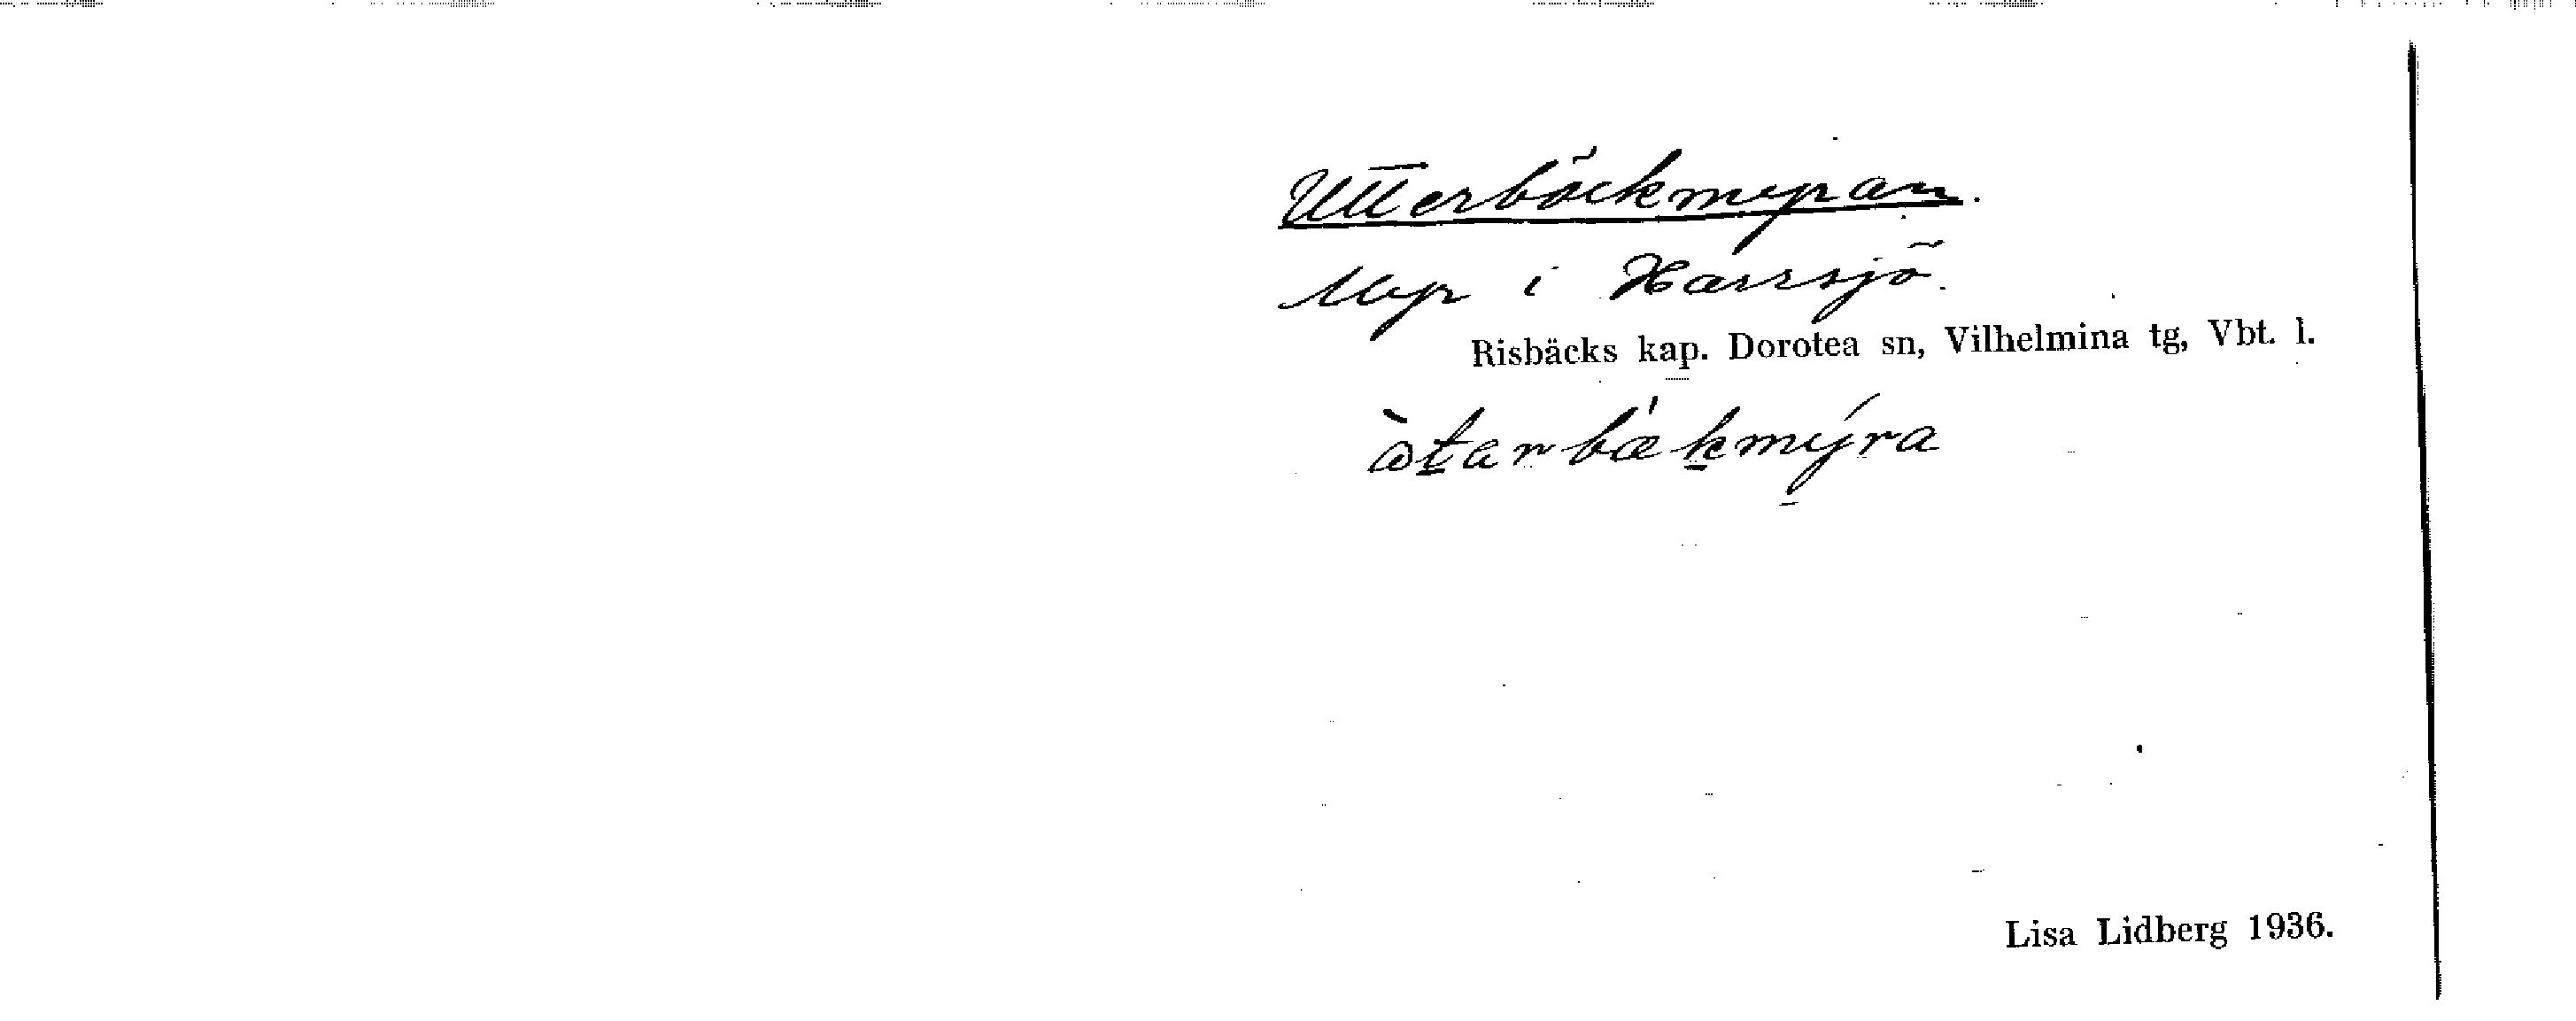 Utterbäckmyran.
Myr i Harrsjö.
Risbäcks kap. Dorotea sn, Vilhelmina tg, Vbt. l.
àtarbækmýra
Lisa Lidberg 1936.